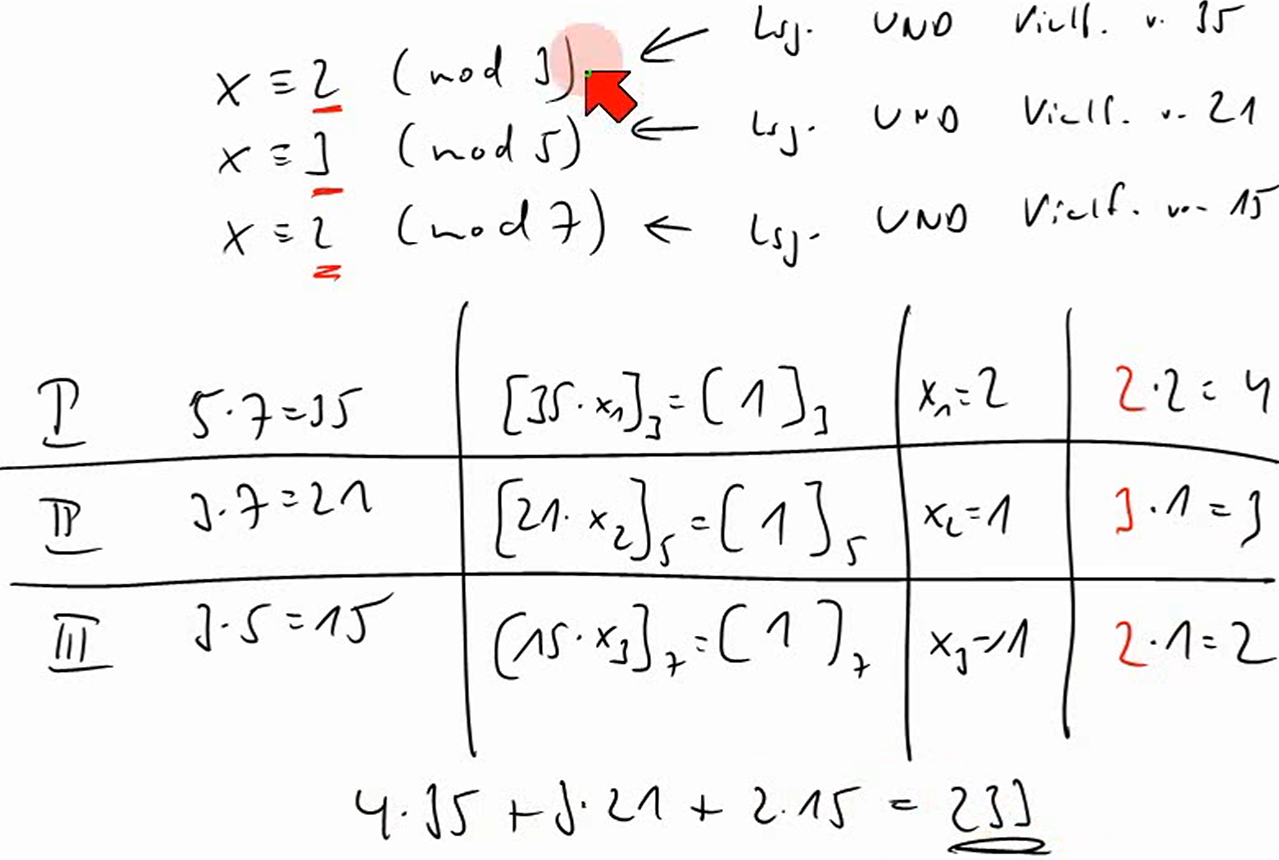 x ≡ 2 (mod 3) ← Lsg. UND Vielf. v. 35
x ≡ 3 (mod 5) ← Lsg. UND Vielf. v. 21
x ≡ 2 (mod 7) ← Lsg. UND Vielf. von 15
I 5·7=35 [35·x₁]₃=[1]₃ x₁=2 2·2=4
II 3·7=21 [21·x₂]₅=[1]₅ x₂=1 3·1=3
III 3·5=15 [15·x₃]₇=[1]₇ x₃=1 2·1=2
4·35+3·21+2·15=233